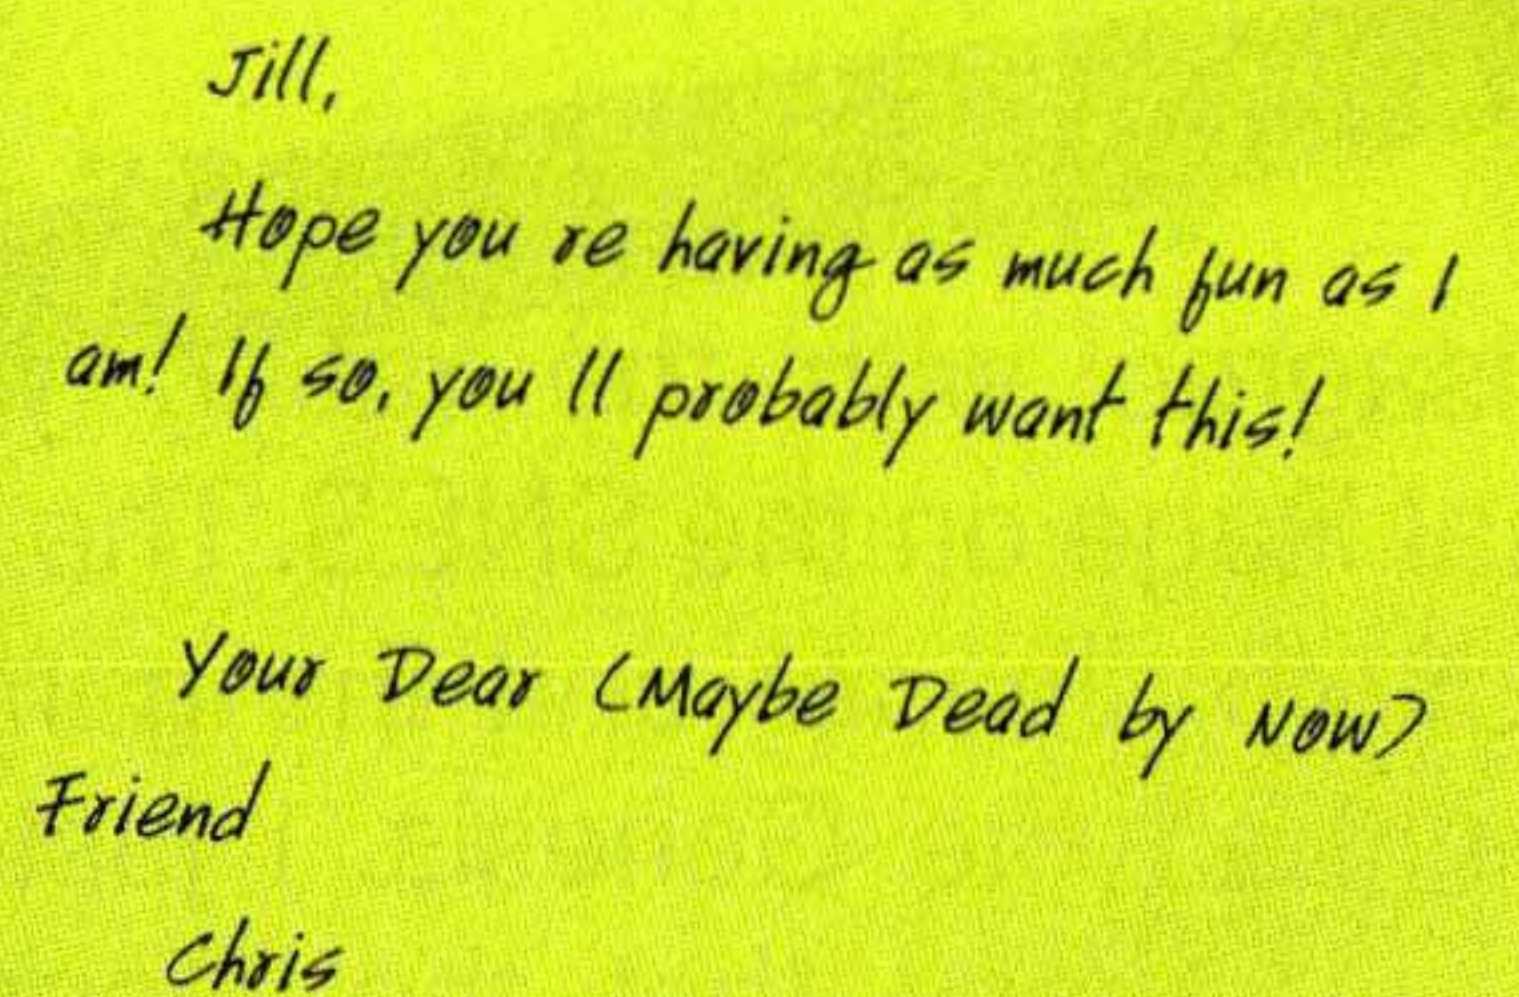 Jill,
Hope you re having as much fun as I
am! If so, you ll probably want this!
Your Dear (Maybe Dead by Now)
Friend
Chris